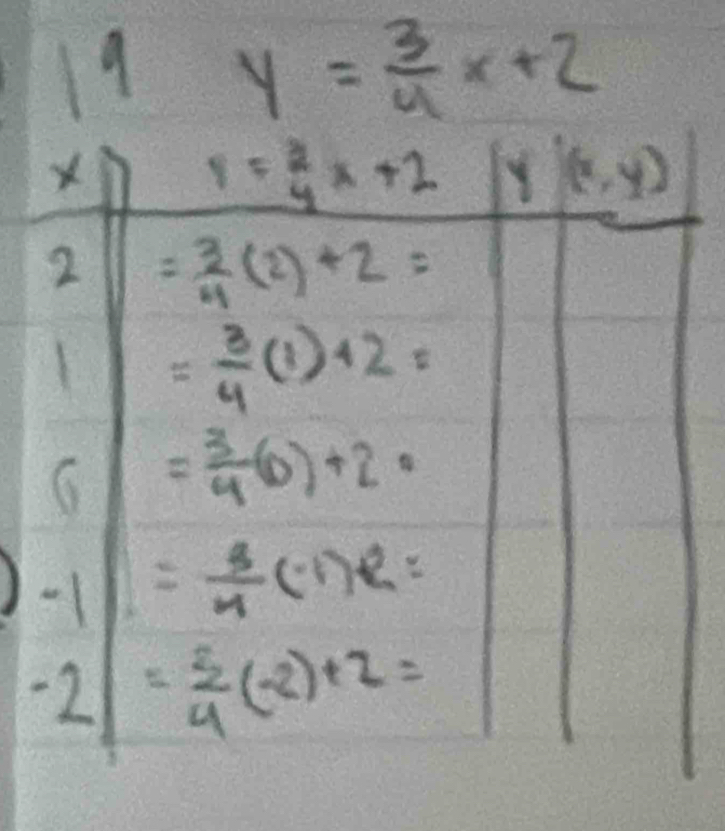 19 y = 3/4 x + 2
x y = 3/4 x + 2 y (x, y)
2 = 3/4 (2) + 2 =
1 = 3/4 (1) + 2 =
0 = 3/4 (0) + 2 =
-1 = 3/4 (-1) + 2 =
-2 = 3/4 (-2) + 2 =